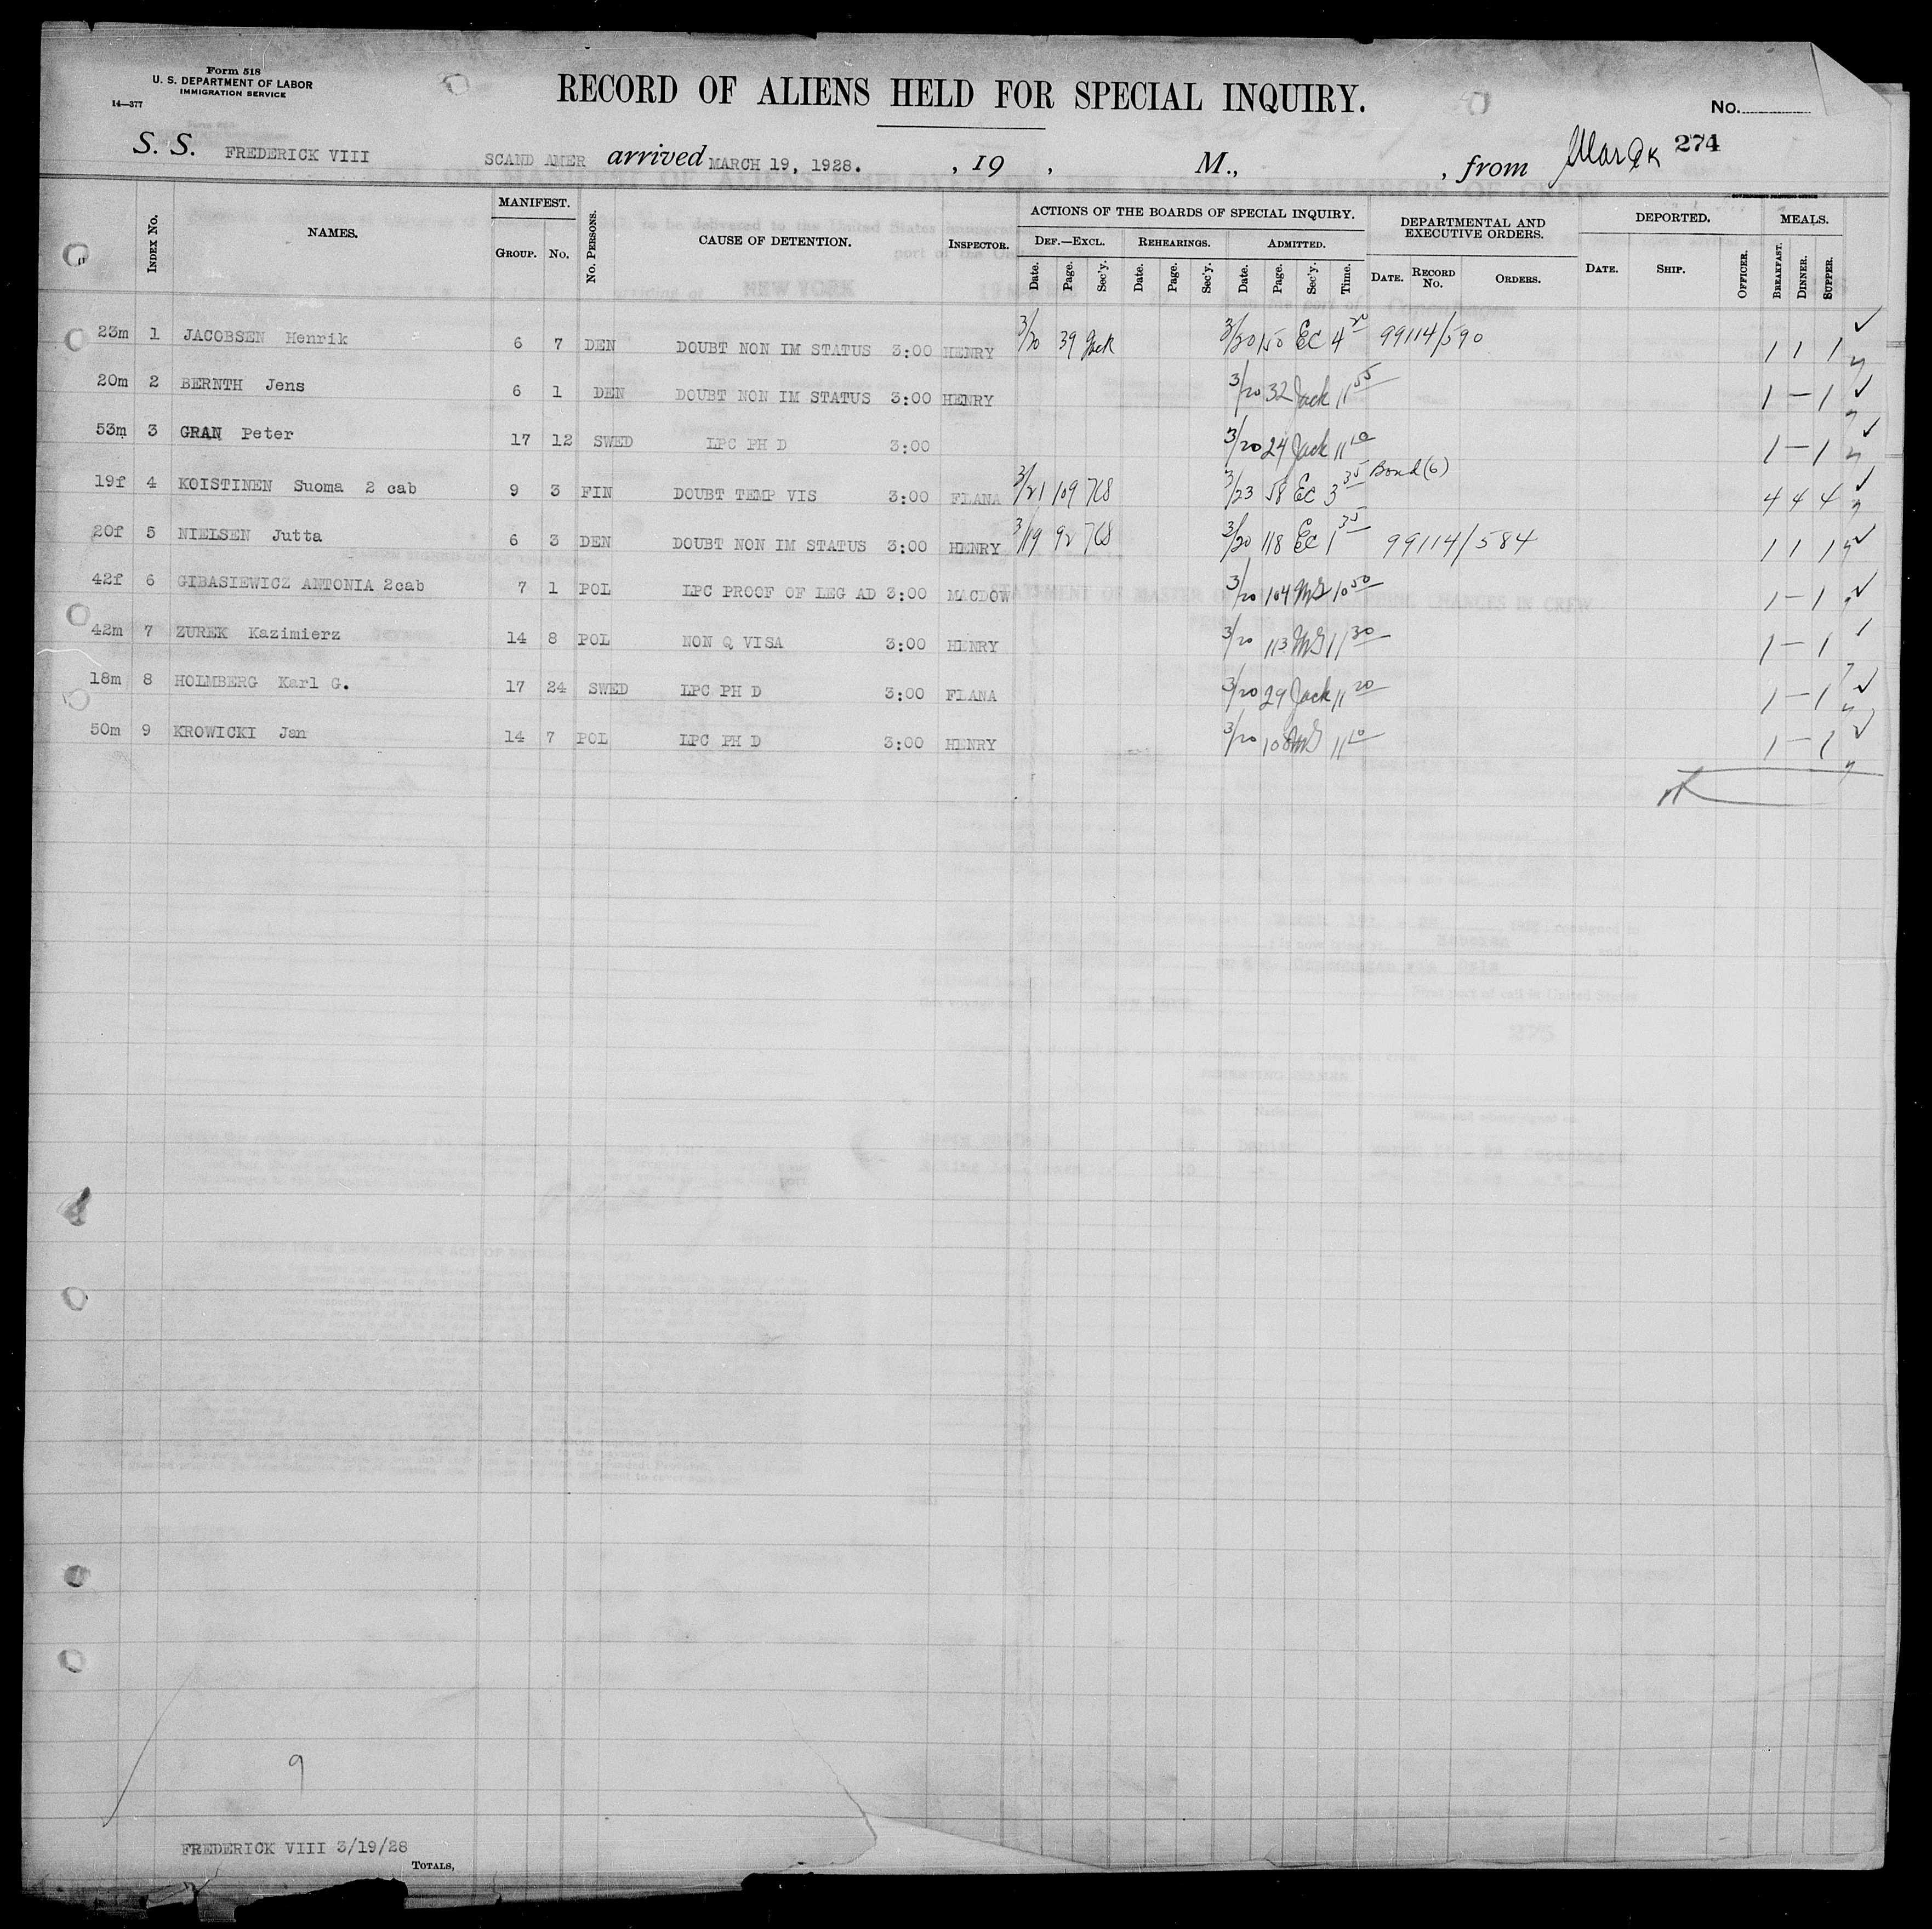 Form 518
U. S. DEPARTMENT OF LABOR
IMMIGRATION SERVICE
14—377
RECORD OF ALIENS HELD FOR SPECIAL INQUIRY.
No.
274
S. S. FREDERICK VIII SCAND AMER arrived MARCH 19, 1928. , 19 , M., , from
INDEX No. NAMES. MANIFEST. GROUP. No. No. PERSONS. CAUSE OF DETENTION. INSPECTOR. ACTIONS OF THE BOARDS OF SPECIAL INQUIRY. DEPARTMENTAL AND EXECUTIVE ORDERS. DEPORTED. MEALS.
DEF.—EXCL. REHEARINGS. ADMITTED.
Date. Page. Sec'y. Date. Page. Sec'y. Date. Page. Sec'y. Time. DATE. RECORD No. ORDERS. DATE. SHIP. OFFICER. BREAKFAST. DINNER. SUPPER.
23m 1 JACOBSEN Henrik 6 7 DEN DOUBT NON IM STATUS 3:00 HENRY 3/20 39 Jack 3/20 150 EC 4 20 99114/590 1 1 1
20m 2 BERNTH Jens 6 1 DEN DOUBT NON IM STATUS 3:00 HENRY 3/20 32 Jack 11 55 1 — 1
53m 3 GRAN Peter 17 12 SWED LPC PH D 3:00 3/20 24 Jack 11 10 1 — 1
19f 4 KOISTINEN Suoma 2 cab 9 3 FIN DOUBT TEMP VIS 3:00 FLANA 3/21 109 3/23 58 EC 3 35 Bond (6) 4 4 4
20f 5 NIELSEN Jutta 6 3 DEN DOUBT NON IM STATUS 3:00 HENRY 3/19 92 3/20 118 EC 1 35 99114/584 1 1 1
42f 6 GIBASIEWICZ ANTONIA 2cab 7 1 POL LPC PROOF OF LEG AD 3:00 MACDOW 3/20 104 10 50 1 — 1
42m 7 ZUREK Kazimierz 14 8 POL NON Q VISA 3:00 HENRY 3/20 113 11 30 1 — 1
18m 8 HOLMBERG Karl G. 17 24 SWED LPC PH D 3:00 FLANA 3/20 29 Jack 11 20 1 — 1
50m 9 KROWICKI Jan 14 7 POL LPC PH D 3:00 HENRY 3/20 108 11 10 1 — 1
9
FREDERICK VIII 3/19/28
TOTALS,